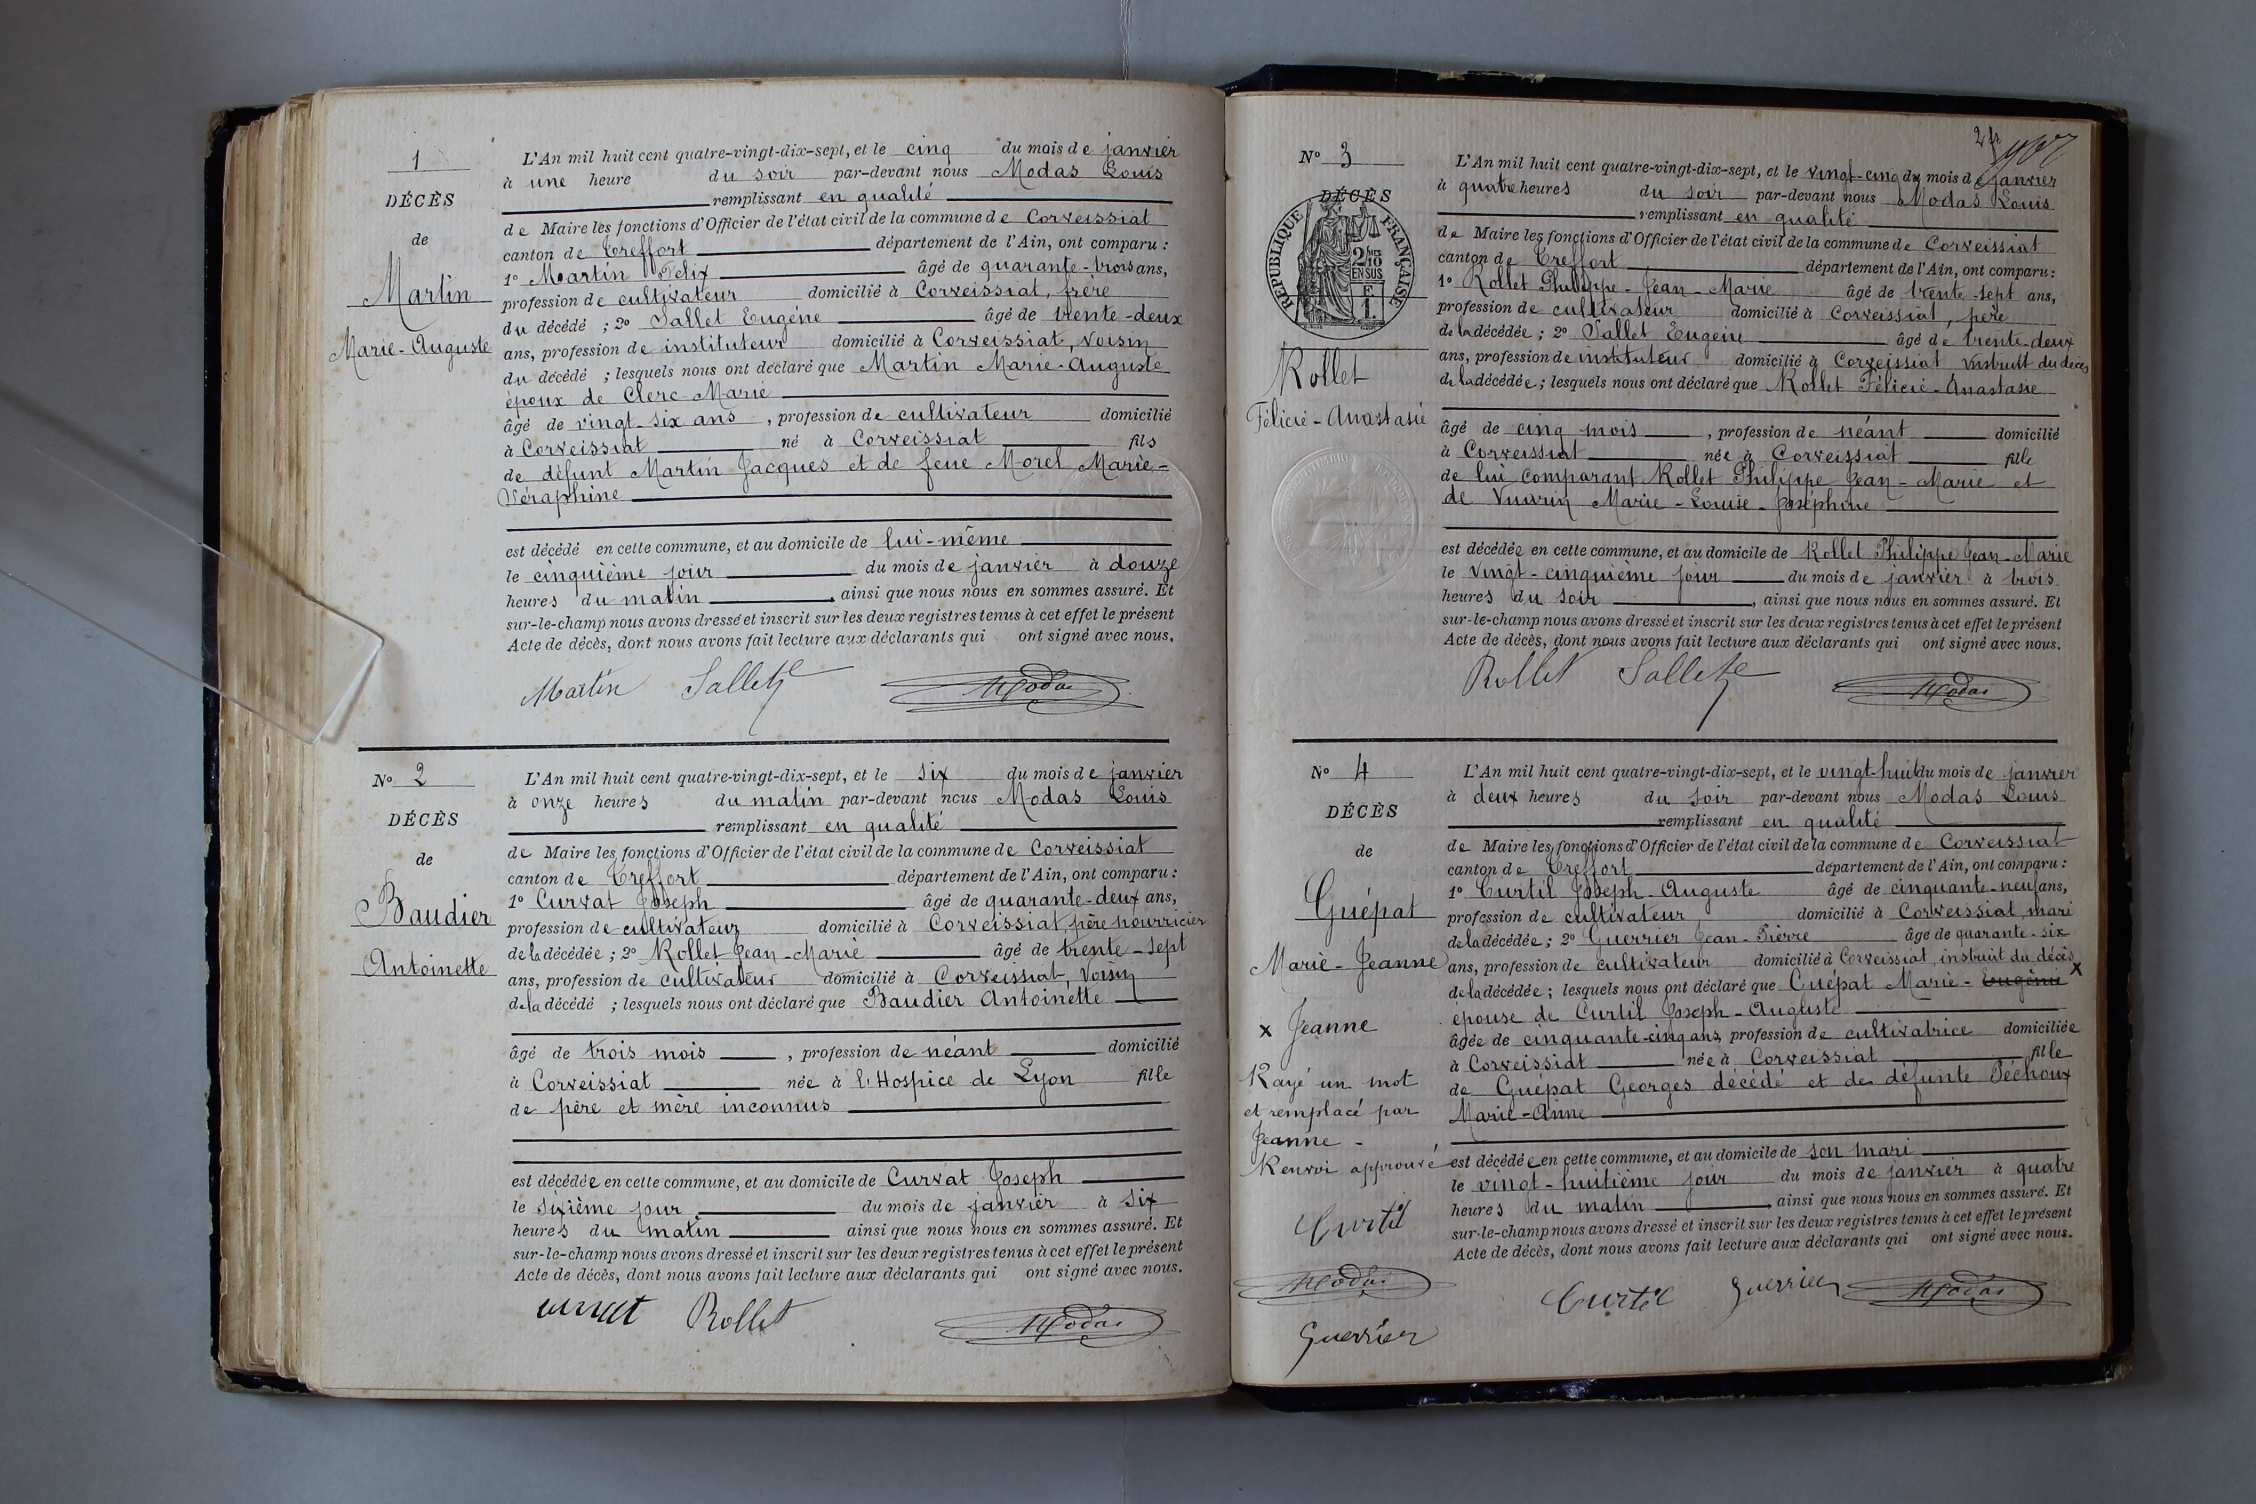 1
DÉCÈS
de
Martin
Marie-Auguste
L'An mil huit cent quatre-vingt-dix-sept, et le cinq du mois de janvier
à une heure du soir par-devant nous Modas Louis
remplissant en qualité
de Maire les fonctions d'Officier de l'état civil de la commune de Corveissiat
canton de Treffort département de l'Ain, ont comparu :
1º Martin Félix âgé de quarante-trois ans,
profession de cultivateur domicilié à Corveissiat, frère
du décédé ; 2º Sallet Eugène âgé de trente-deux
ans, profession de instituteur domicilié à Corveissiat, voisin
du décédé ; lesquels nous ont déclaré que Martin Marie-Auguste
époux de Clerc Marie
âgé de vingt-six ans , profession de cultivateur domicilié
à Corveissiat né à Corveissiat fils
de défunt Martin Jacques et de feue Morel Marie-
Séraphine
est décédé en cette commune, et au domicile de lui-même
le cinquième jour du mois de janvier à douze
heures du matin , ainsi que nous nous en sommes assuré. Et
sur-le-champ nous avons dressé et inscrit sur les deux registres tenus à cet effet le présent
Acte de décès, dont nous avons fait lecture aux déclarants qui ont signé avec nous.
Martin Sallet Modas
Nº 2
DÉCÈS
de
Baudier
Antoinette
L'An mil huit cent quatre-vingt-dix-sept, et le six du mois de janvier
à onze heures du matin par-devant nous Modas Louis
remplissant en qualité
de Maire les fonctions d'Officier de l'état civil de la commune de Corveissiat
canton de Treffort département de l'Ain, ont comparu :
1º Curvat Joseph âgé de quarante-deux ans,
profession de cultivateur domicilié à Corveissiat, père nourricier
de la décédée ; 2º Rollet Jean-Marie âgé de trente-sept
ans, profession de cultivateur domicilié à Corveissiat, voisin
de la décédé ; lesquels nous ont déclaré que Baudier Antoinette
âgé de trois mois , profession de néant domicilié
à Corveissiat née à l'Hospice de Lyon fille
de père et mère inconnus
est décédée en cette commune, et au domicile de Curvat Joseph
le sixième jour du mois de janvier à six
heures du matin ainsi que nous nous en sommes assuré. Et
sur-le-champ nous avons dressé et inscrit sur les deux registres tenus à cet effet le présent
Acte de décès, dont nous avons fait lecture aux déclarants qui ont signé avec nous.
curvat Rollet Modas
2
Nº 3
DÉCÈS
RÉPUBLIQUE FRANÇAISE
2/10
EN SUS
F
1
Rollet
Félicie-Anastasie
L'An mil huit cent quatre-vingt-dix-sept, et le vingt-cinq du mois de janvier
à quatre heures du soir par-devant nous Modas Louis
remplissant en qualité
de Maire les fonctions d'Officier de l'état civil de la commune de Corveissiat
canton de Treffort département de l'Ain, ont comparu :
1º Rollet Philippe-Jean-Marie âgé de trente-sept ans,
profession de cultivateur domicilié à Corveissiat, père
de la décédée ; 2º Sallet Eugène âgé de trente-deux
ans, profession de instituteur domicilié à Corveissiat instruit du décès
de la décédée ; lesquels nous ont déclaré que Rollet Félicie-Anastasie
âgé de cinq mois , profession de néant domicilié
à Corveissiat née à Corveissiat fille
de lui comparant Rollet Philippe Jean-Marie et
de Marie-Louise-Joséphine
est décédée en cette commune, et au domicile de Rollet Philippe Jean-Marie
le vingt-cinquième jour du mois de janvier à trois
heures du soir , ainsi que nous nous en sommes assuré. Et
sur-le-champ nous avons dressé et inscrit sur les deux registres tenus à cet effet le présent
Acte de décès, dont nous avons fait lecture aux déclarants qui ont signé avec nous.
Rollet Sallet Modas
Nº 4
DÉCÈS
de
Guépat
Marie-Jeanne
x Jeanne
Rayé un mot
et remplacé par
Jeanne -
Renvoi approuvé
Curtil
Modas
Guerrier
L'An mil huit cent quatre-vingt-dix-sept, et le vingt-huit du mois de janvier
à deux heures du soir par-devant nous Modas Louis
remplissant en qualité
de Maire les fonctions d'Officier de l'état civil de la commune de Corveissiat
canton de Treffort département de l'Ain, ont comparu :
1º Curtil Joseph-Auguste âgé de cinquante-neuf ans,
profession de cultivateur domicilié à Corveissiat, mari
de la décédée ; 2º Guerrier Jean-Pierre âge de quarante-six
ans, profession de cultivateur domicilié à Corveissiat, instruit du décès
de la décédée ; lesquels nous ont déclaré que Guépat Marie-Eugénie x
épouse de Curtil Joseph-Auguste
âgée de cinquante-cinq ans, profession de cultivatrice domiciliée
à Corveissiat née à Corveissiat fille
de Guépat Georges décédé et de défunte Péchoux
Marie-Anne
est décédée en cette commune, et au domicile de son mari
le vingt-huitième jour du mois de janvier à quatre
heures du matin , ainsi que nous nous en sommes assuré. Et
sur-le-champ nous avons dressé et inscrit sur les deux registres tenus à cet effet le présent
Acte de décès, dont nous avons fait lecture aux déclarants qui ont signé avec nous.
Curtil Guerrier Modas